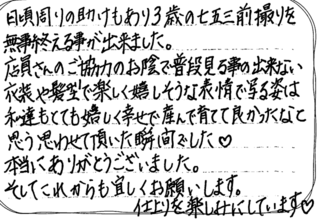 日頃周りの助けもあり3歳の七五三前撮りを
無事終える事が出来ました。
店員さんのご協力のお陰で普段見る事の出来ない
衣装や髪型で楽しく嬉しそうな表情で写る姿は
私達もとても嬉しく幸せで産んで育てて良かったなと
思う思わせて頂いた瞬間でした♡
本当にありがとうございました。
そしてこれからも宜しくお願いします。
仕上りを楽しみにしています♡